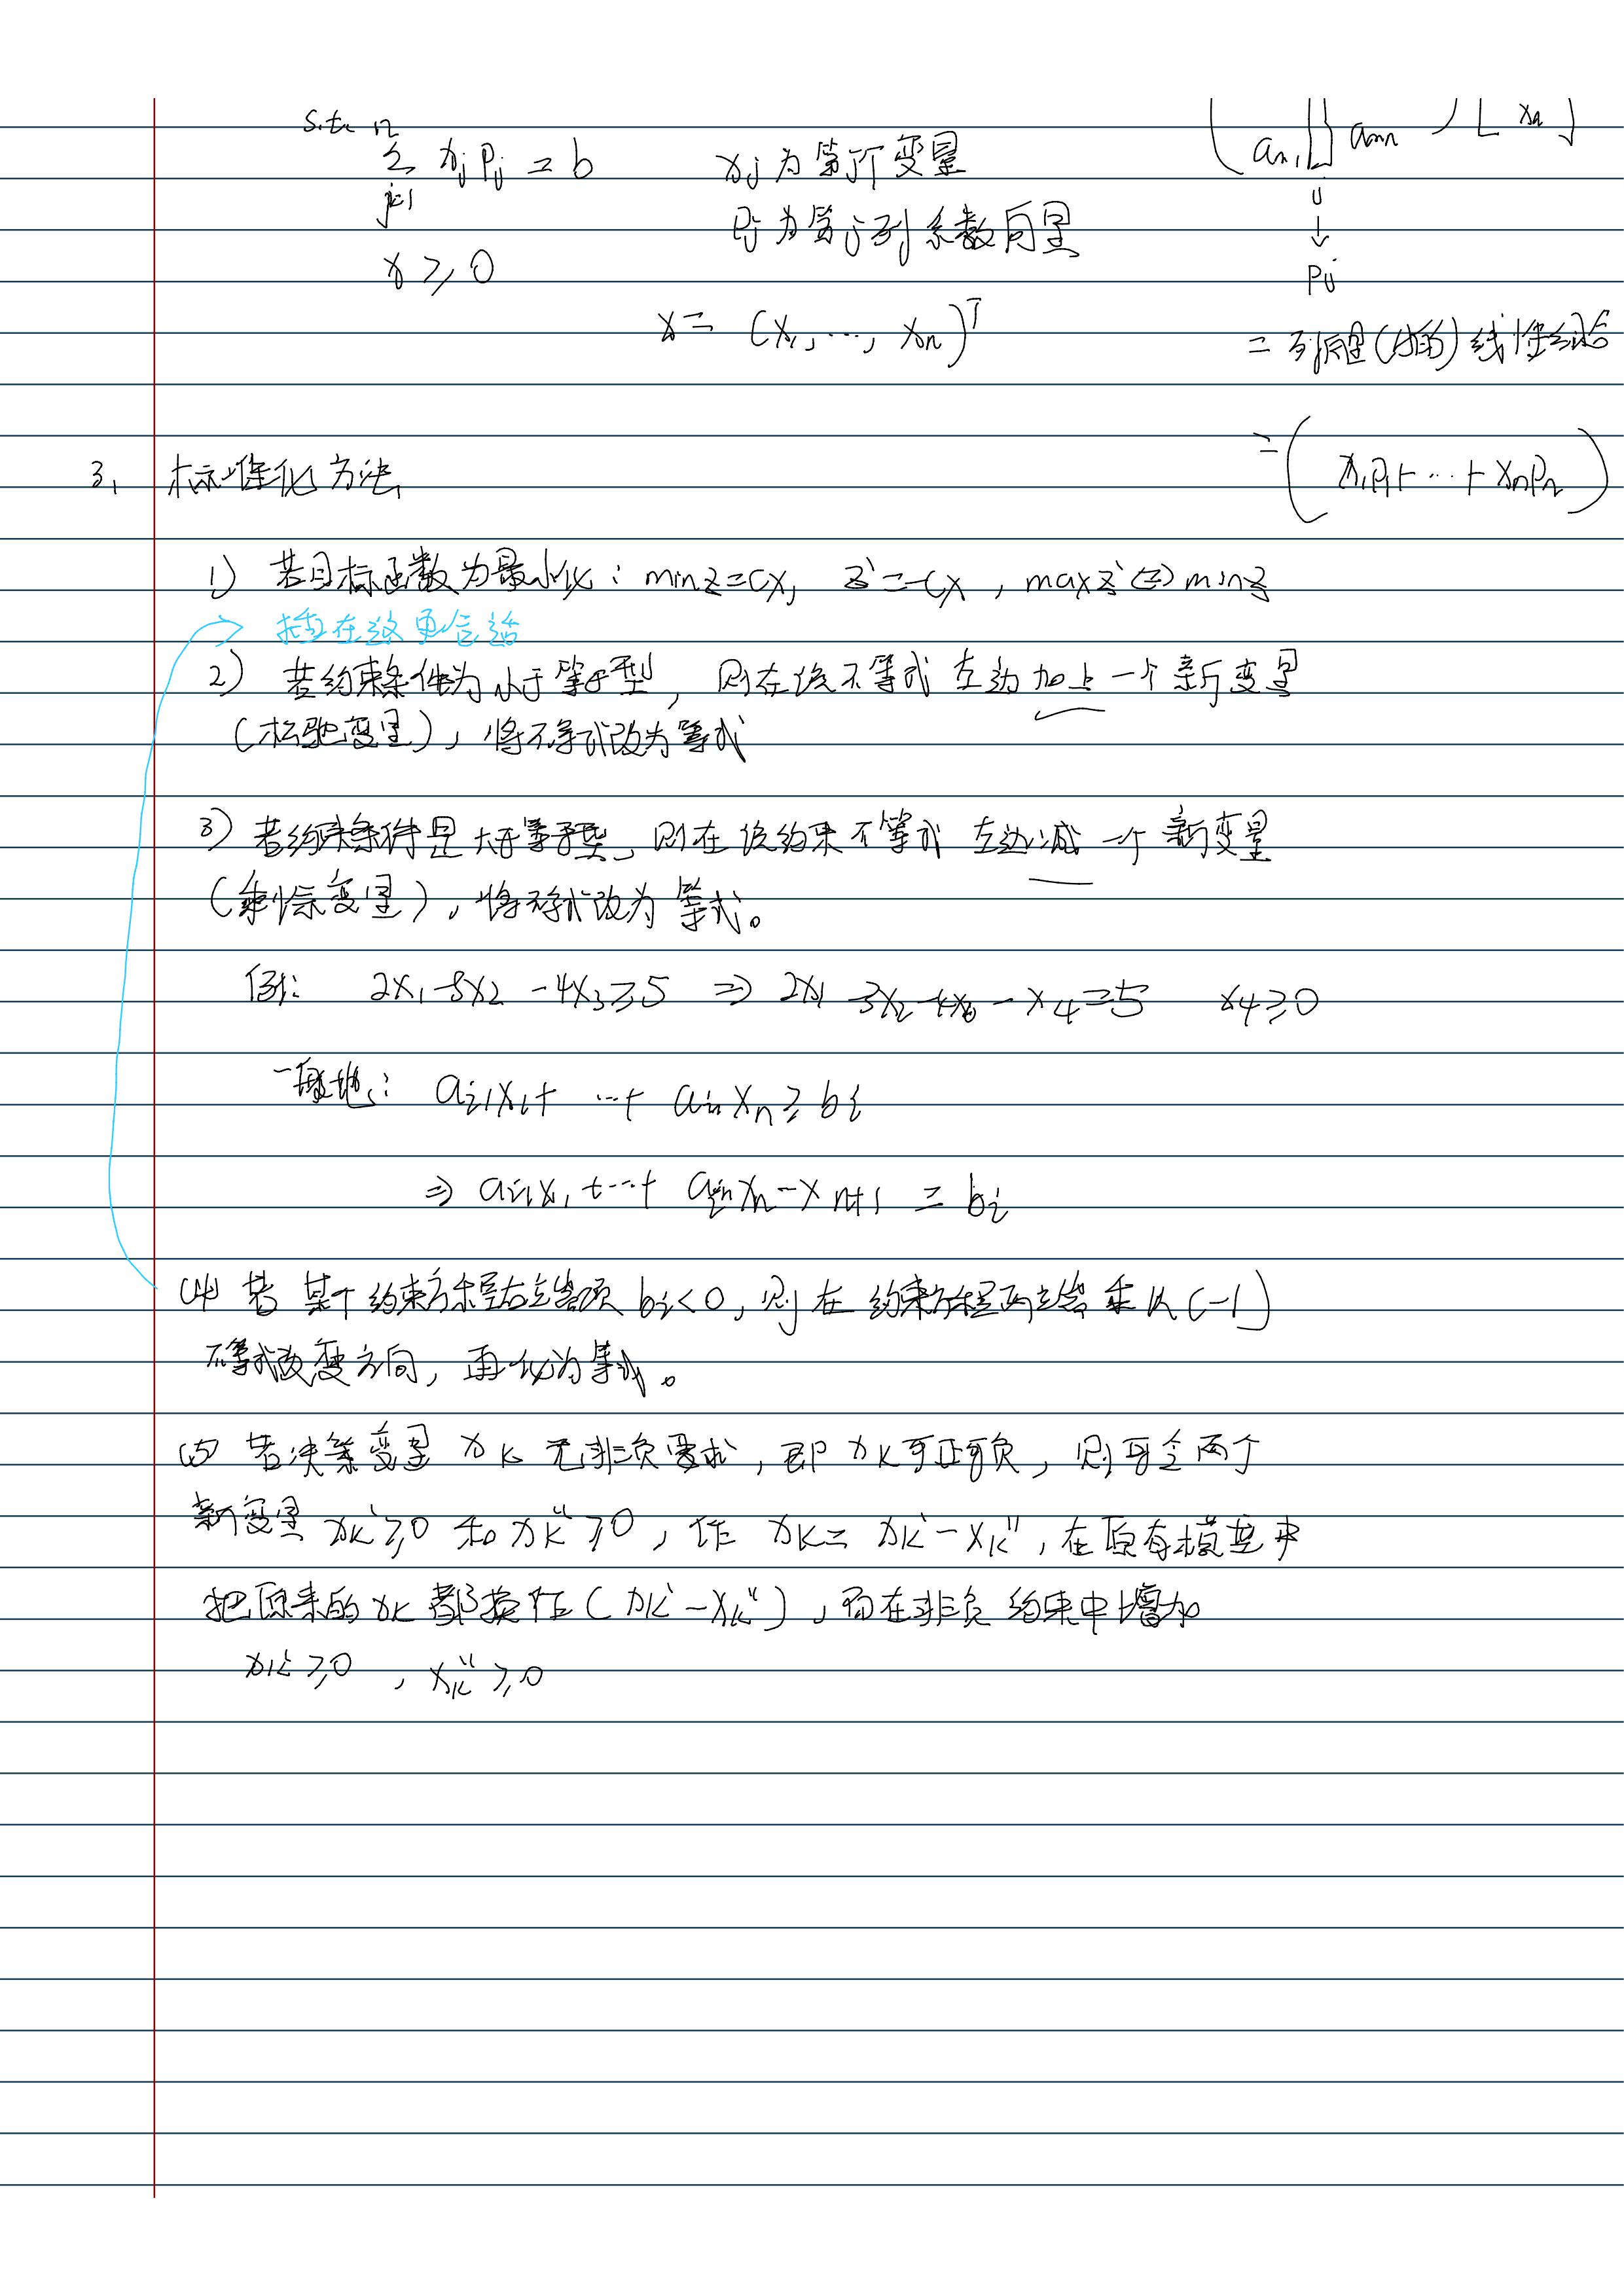 s.t. n
∑ xⱼ Pⱼ = b xⱼ为第j个变量
j=1
Pⱼ为第j列系数向量
x ≥ 0
x = (x₁, …, xₙ)ᵀ
aₘ₁ aₘₙ xₙ
↓
Pⱼ
= 列向量 线性组合
= (x₁P₁ + … + xₙPₙ)
3. 标准化方法
1) 若目标函数为最小化：min z = cx, z' = -cx, max z' ⇔ min z
插在这更合适
2) 若约束条件为小于等于型，则在该不等式左边加上一个新变量
(松驰变量)，将不等式改为等式
3) 若约束条件是大于等于型，则在该约束不等式左边减一个新变量
(剩余变量)，将不等式改为等式。
例： 2x₁ -3x₂ -4x₃ ≥ 5 ⇒ 2x₁ -3x₂ -4x₃ - x₄ = 5 x₄ ≥ 0
一般地： aᵢ₁x₁ + … + aᵢₙxₙ ≥ bᵢ
⇒ aᵢ₁x₁ + … + aᵢₙxₙ - xₙ₊₁ = bᵢ
(4) 若某个约束方程右端项 bᵢ < 0，则在约束方程两端乘以(-1)
不等式改变方向，再化为等式。
(5) 若决策变量 xₖ 无非负要求，即 xₖ 可正可负，则可令两个
新变量 xₖ' ≥ 0 和 xₖ'' ≥ 0，作 xₖ = xₖ' - xₖ''，在原有模型中
把原来的 xₖ 都换作(xₖ' - xₖ'')，而在非负约束中增加
xₖ' ≥ 0 , xₖ'' ≥ 0